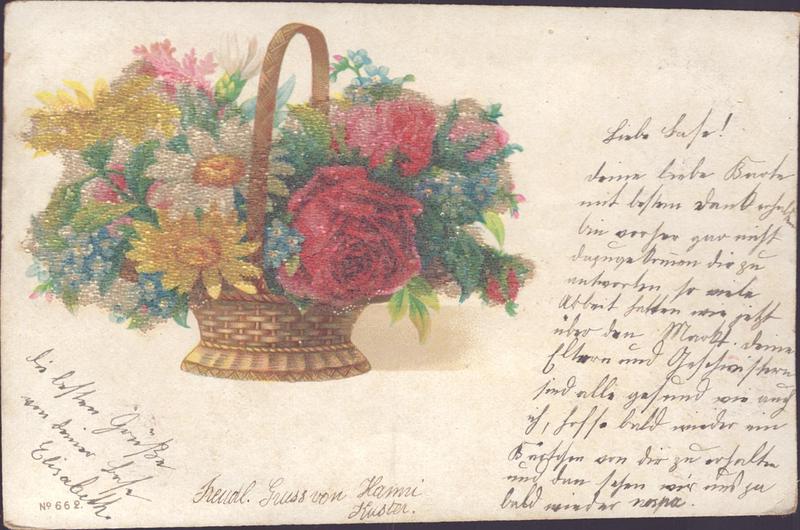 Liebe Base!
deine liebe Karte
mit bestem Dank erhalten
bin vorher gar nicht
dazugekommen dir zu
antworten so viele
Arbeit hatten wir jetzt
über den Markt. deine
Eltern und Geschwistern
sind alle gesund wie auch
ich, hoffe bald wieder ein
Kärtchen von dir zu erhalten
und dan sehen wir uns ja
bald wieder
die besten Grüße
von deiner Base
Elisabeth
Freudl. Gruss von Hanni
Kuster.
No 662.